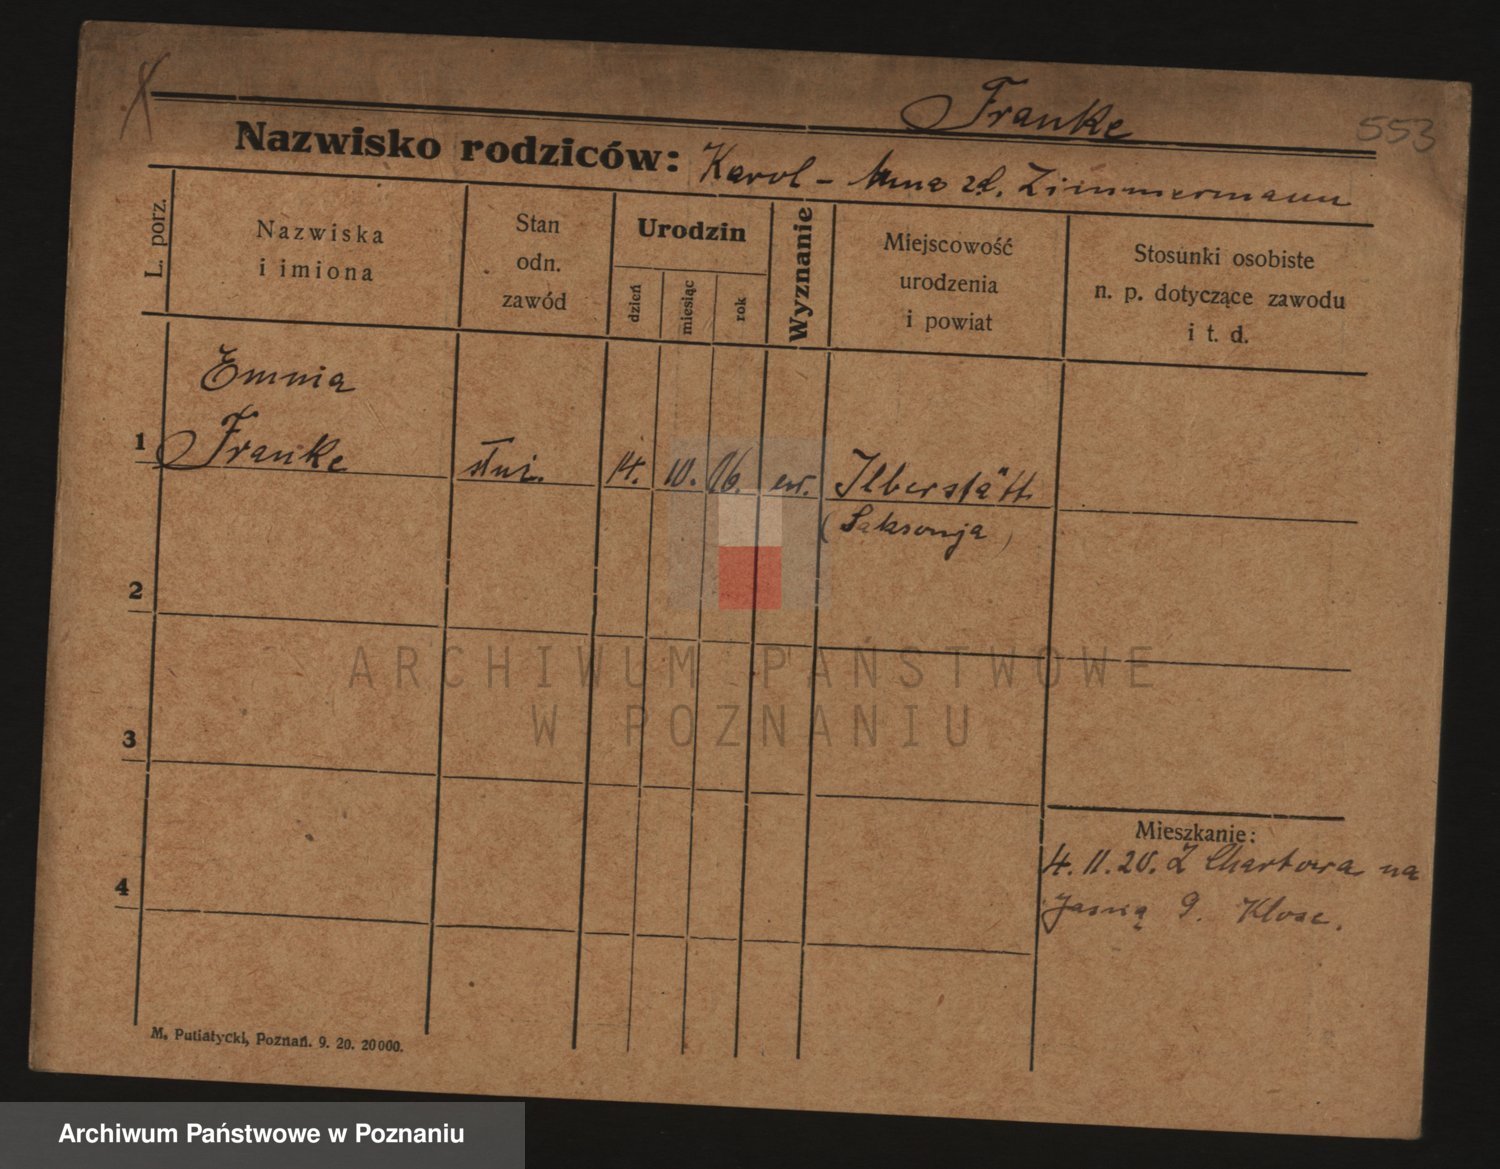 Franke
553
Nazwisko rodziców: Karol - Anna zd. Zimmermann
L. porz.
Nazwiska
i imiona
Stan
odn.
zawód
Urodzin
dzień
miesiąc
rok
Wyznanie
Miejscowość
urodzenia
i powiat
Stosunki osobiste
n. p. dotyczące zawodu
i t. d.
Emma
1 Franke służ. 14. 10. 06. ew. Ilberstätt
(Saksonja)
2
3
4
Mieszkanie:
4. 11. 20. Z Chartowa na
Jasną 9. Klose.
M. Putiatycki, Poznań. 9. 20. 20000.
ARCHIWUM PAŃSTWOWE
W POZNANIU
Archiwum Państwowe w Poznaniu